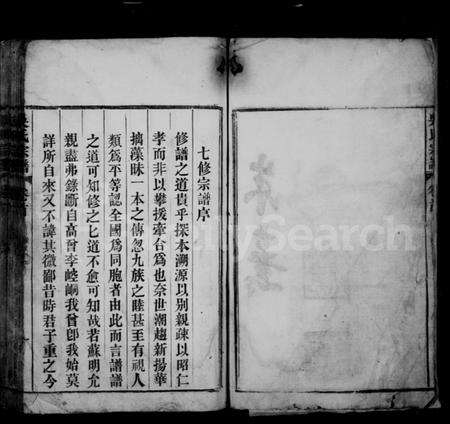 七修宗譜序
修譜之道貴乎探本溯源以別親疎以昭仁
孝而非以攀援牽合爲也奈世潮趨新揚華
摛藻昧一本之傳忽九族之睦甚至有視人
類爲平等認全國爲同胞者由此而言譜譜
之道可知修之七道不愈可知哉若蘇明允
親盡弗錄斷自高曾李崆峒我曾卽我始莫
詳所自來又不諱其微鄙昔時君子重之今
FamilySearch